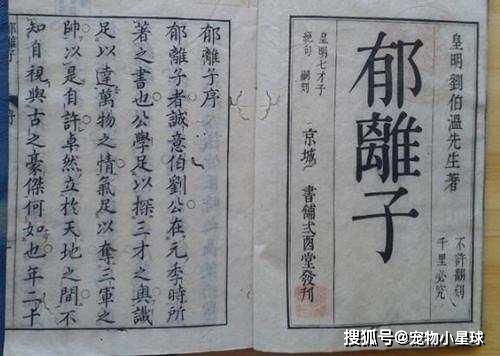 皇明劉伯溫先生著
不許翻刻
千里必究
郁離子
皇明七才子
絶句 嗣刻
京城 書舖弍酉堂發刊
郁離子序
郁離子者誠意伯劉公在元季時所
著之書也公學足以探三才之奧識
足以達萬物之情氣足以奪三軍之
帥以是自許卓然立於天地之間不
知自視與古之豪傑何如也年二十
郁離子
搜狐号@宠物小星球